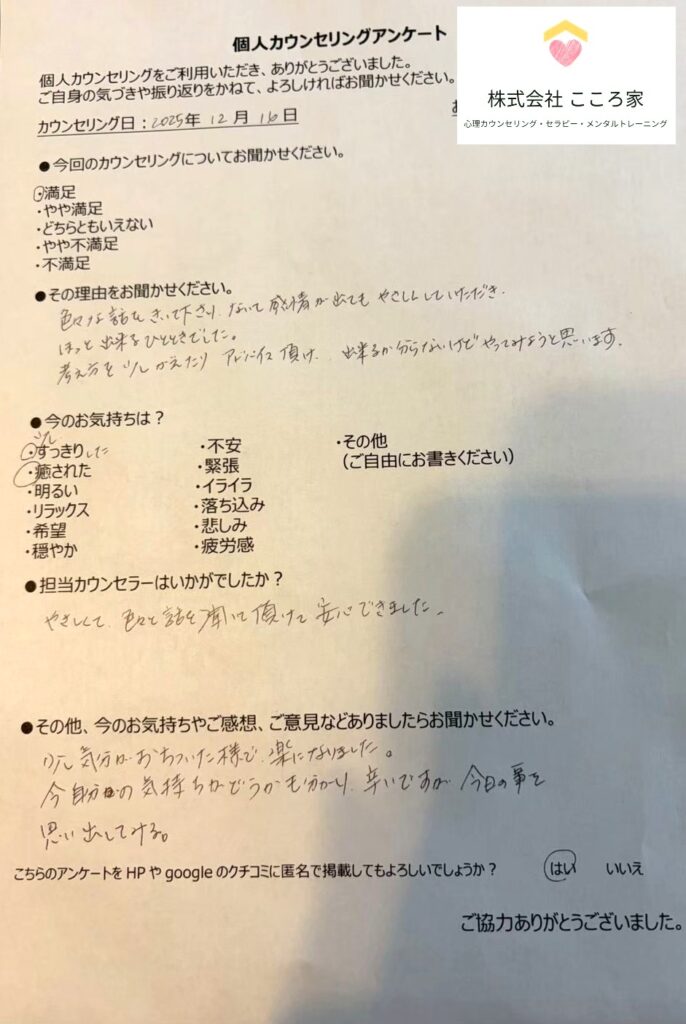 個人カウンセリングアンケート
株式会社 こころ家
心理カウンセリング・セラピー・メンタルトレーニング
個人カウンセリングをご利用いただき、ありがとうございました。
ご自身の気づきや振り返りをかねて、よろしければお聞かせください。
カウンセリング日：2025年 12月 16日
●今回のカウンセリングについてお聞かせください。
・満足
・やや満足
・どちらともいえない
・やや不満足
・不満足
●その理由をお聞かせください。
色々な話をきいて下さり、ないて感情が出てもやさしくしていただき、
ほっと出来るひとときでした。
考え方を少しかえたり アドバイス頂け、出来るか分らないけどやってみようと思います。
●今のお気持ちは？
少し
・すっきりした
・癒された
・明るい
・リラックス
・希望
・穏やか
・不安
・緊張
・イライラ
・落ち込み
・悲しみ
・疲労感
・その他
（ご自由にお書きください）
●担当カウンセラーはいかがでしたか？
やさしくて、色々と話を聞いて頂けて安心できました。
●その他、今のお気持ちやご感想、ご意見などありましたらお聞かせください。
少し気分がおちついた様で、楽になりました。
今自分の気持ちがどうかも分かり、辛いですが、今日の事を
思い出してみる。
こちらのアンケートをHPやgoogleのクチコミに匿名で掲載してもよろしいでしょうか？ はい いいえ
ご協力ありがとうございました。